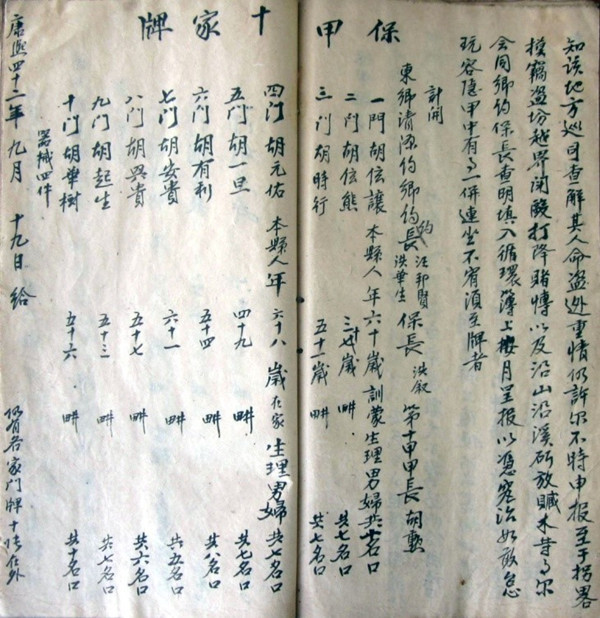 保甲十家牌
知该地方巡司查解其人命盗逃重情仍許尔不時申报至于拐畧
摸竊盗坊越界闹酸打降賭愽以及沿山沿溪斫放贓木者尔
会同鄉约保長查明填入循環薄上按月呈报以憑究治如敢怠
玩容隐甲中有一併連坐不宥須至牌者
計開
東鄉清源约鄉约長 汪邦賢 洪華生 保長 洪叙 第十甲甲長 胡
一門 胡信讓 本縣人年六十歲 訓蒙生理 男婦共十名口
二門 胡信熊 三十七歲 畊 共七名口
三門 胡時行 五十一歲 畊 共七名口
四門 胡元佑 本縣人年六十八歲 在家生理 男婦共七名口
五門 胡一旦 四十九 畊 共七名口
六門 胡有利 五十四 畊 共八名口
七門 胡安貴 六十一 畊 共五名口
八門 胡興貴 五十七 畊 共六名口
九門 胡起生 五十三 畊 共七名口
十門 胡華樹 五十六 畊 共十名口
器械四件
康熙四十二年 九月 十九日 给
仍有各家門牌十張在外